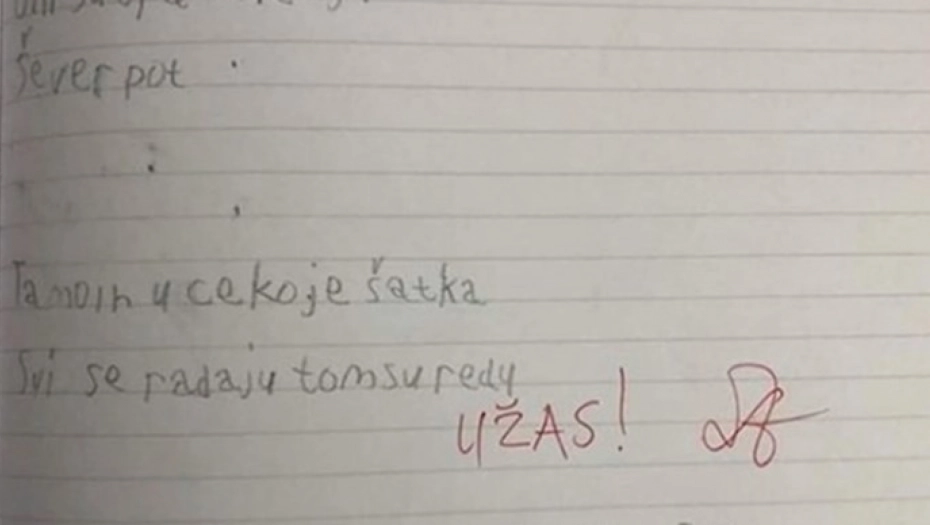 Šever pot
Tamoin u cekoje šatka
Svi se radaju tomsuredu
UŽAS!